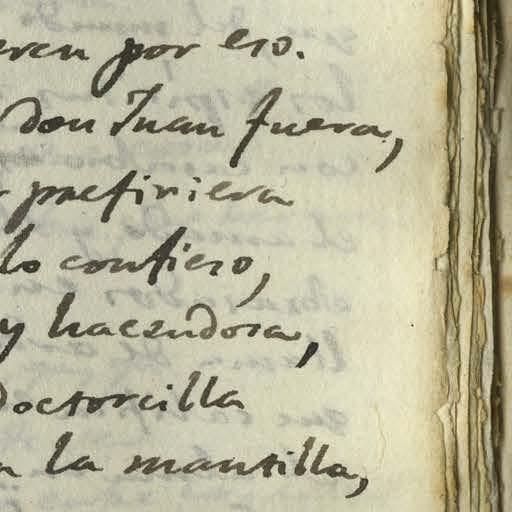 eren por eso.
don Juan fuera,
prefiriera
lo confieso,
y hacendosa,
Doctorcilla
la mantilla,